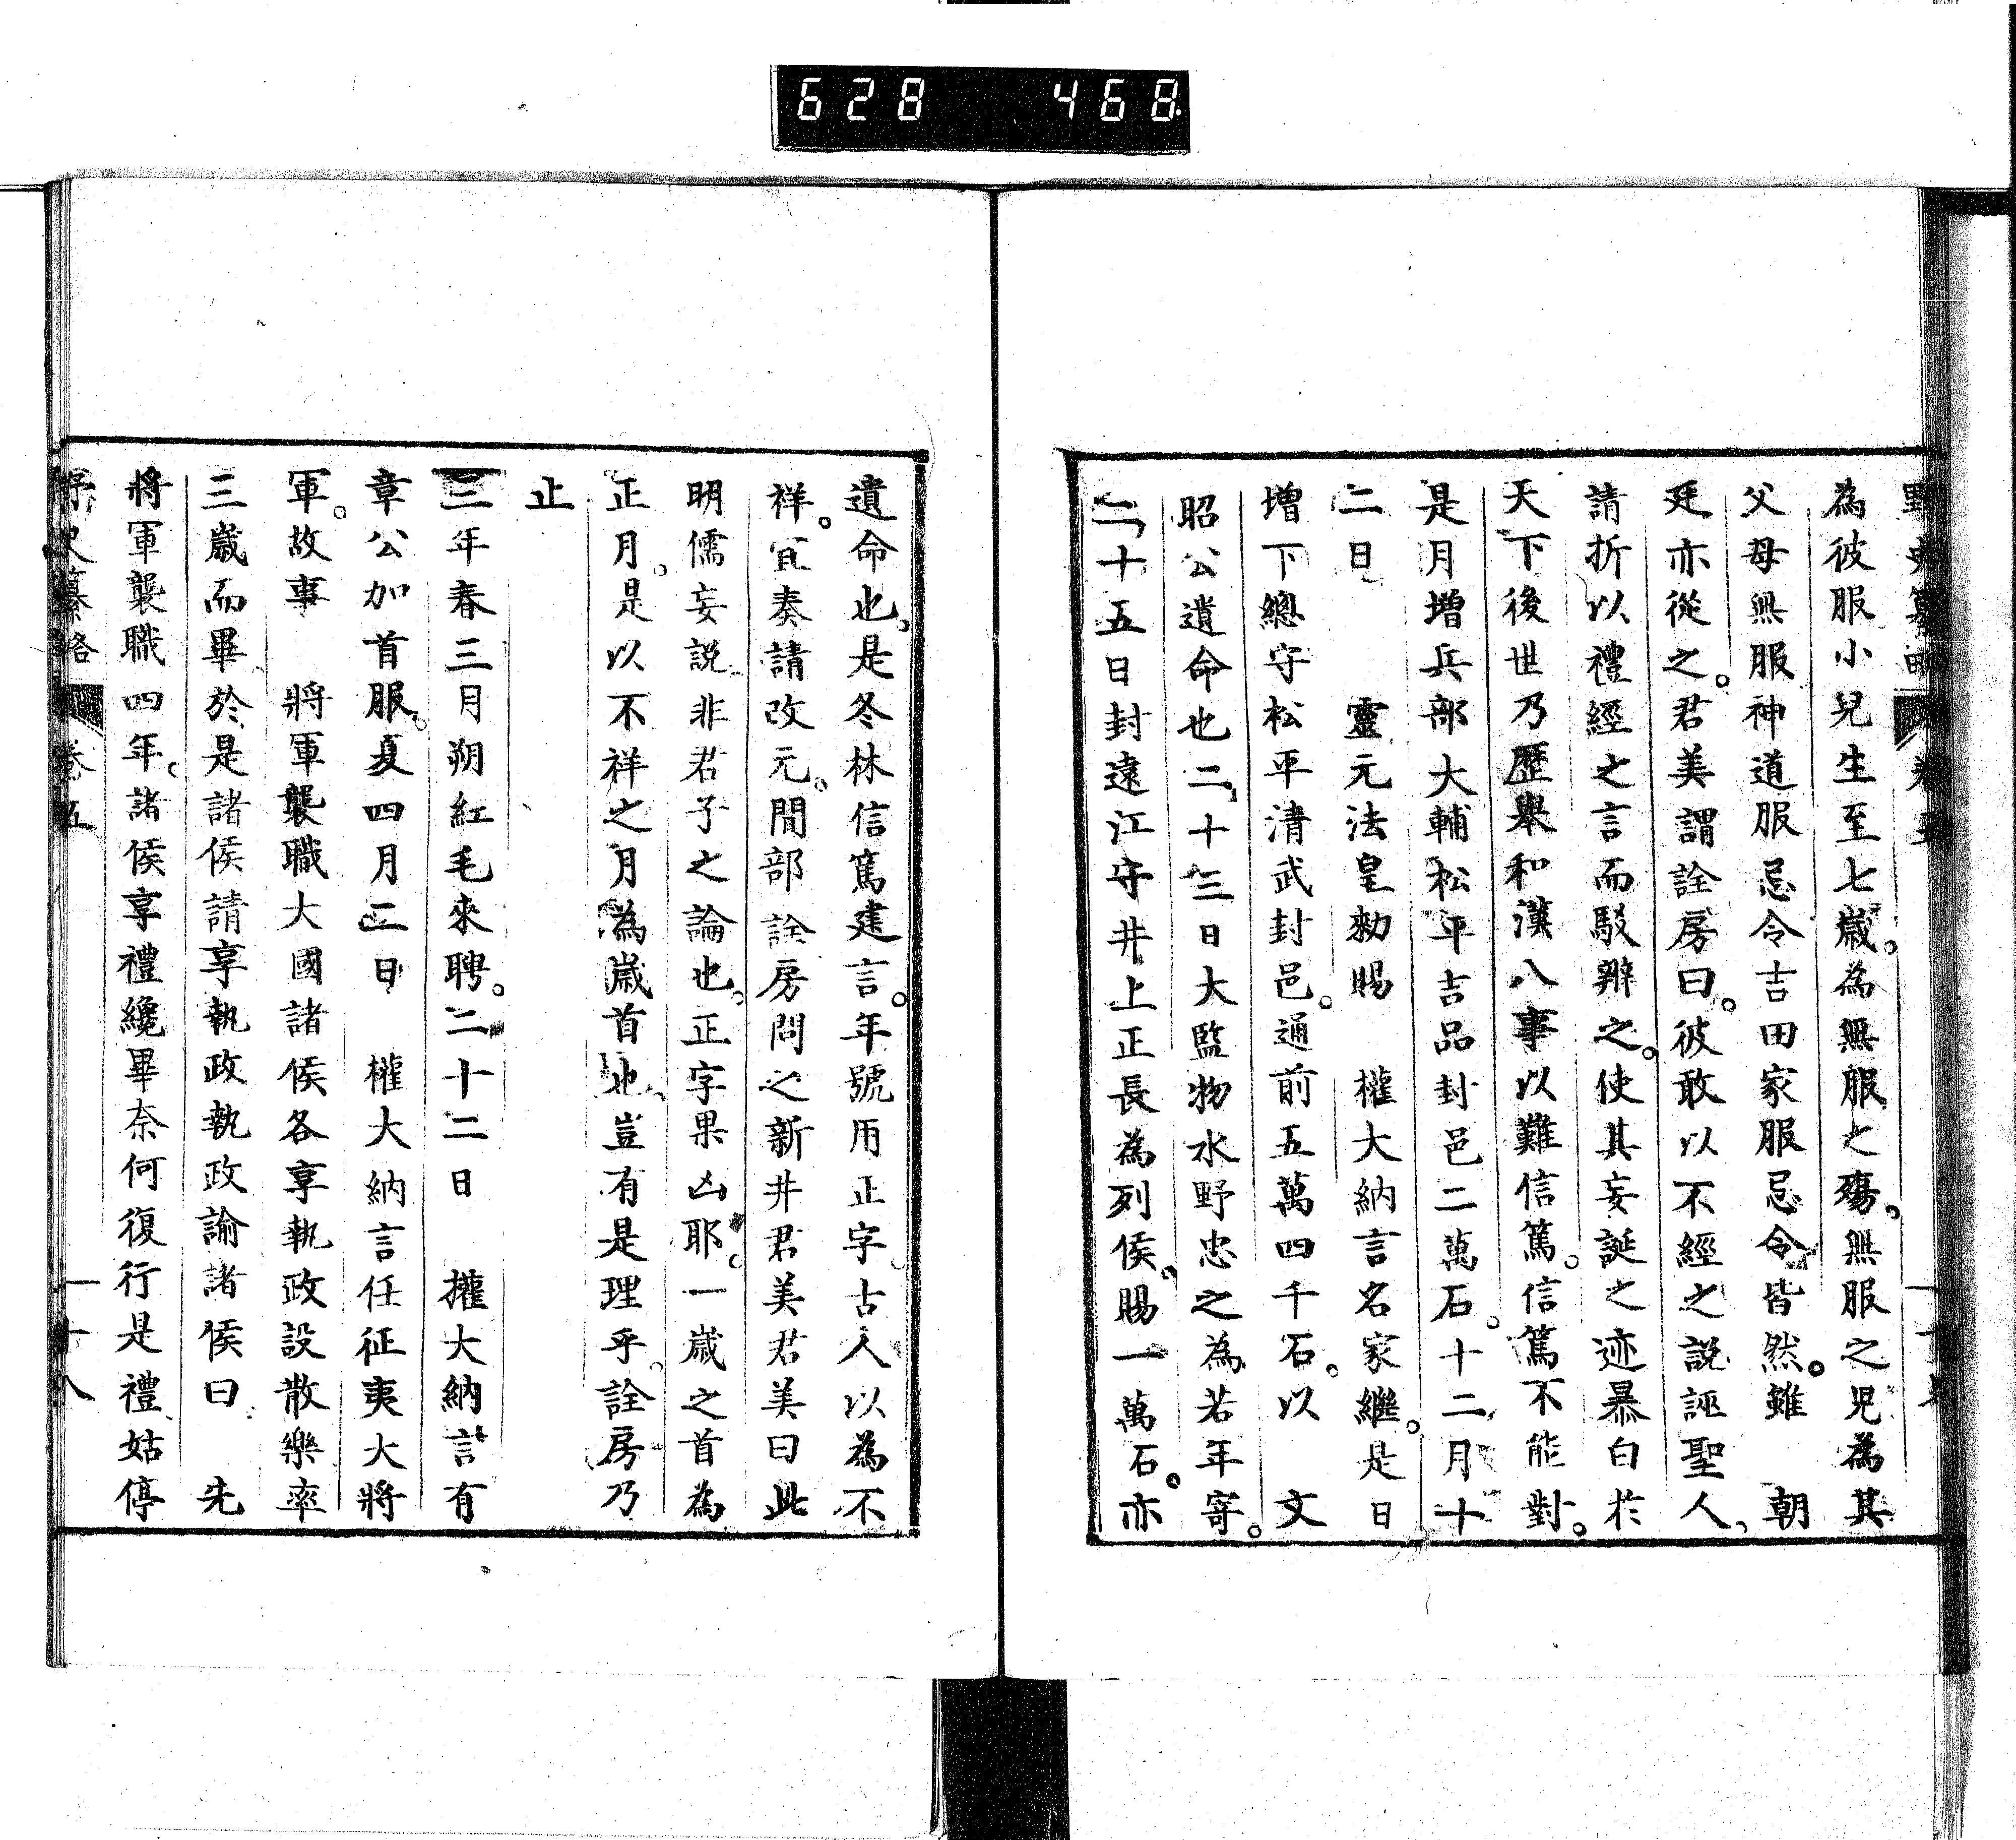 628 468
為彼服小兒生至七歲。為無服之殤。無服之兒為其
父母無服神道服忌令吉田家服忌令皆然。雖　朝
廷亦從之。君美謂詮房曰。彼敢以不經之說誣聖人、
請折以禮經之言而駁辨之。使其妄誕之迹暴白於
天下後世乃歷舉和漢八事以難信篤。信篤不能對。
是月增兵部大輔松平吉品封邑二萬石。十二月十
二日　靈元法皇勅賜　權大納言名家繼。是日
增下總守松平清武封邑。通前五萬四千石。以　文
昭公遺命也二十三日大監物水野忠之為若年寄。
二十五日封遠江守井上正長為列侯。賜一萬石。亦
遺命也、是冬林信篤建言。年號用正字。古人以為不
祥。宜奏請改元。間部詮房問之新井君美君美曰此
明儒妄說非君子之論也。正字果凶耶。一歲之首為
正月。是以不祥之月為歲首也。豈有是理乎。詮房乃
止
三年春三月朔紅毛來聘。二十二日　權大納言有
章公加首服。夏四月二日　權大納言任征夷大將
軍。故事　將軍襲職大國諸侯各享執政設散樂率
三歲而畢於是諸侯請享執政執政諭諸侯曰　先
將軍襲職四年。諸侯享禮纔畢奈何復行是禮姑停
野史纂略　卷五　一十八